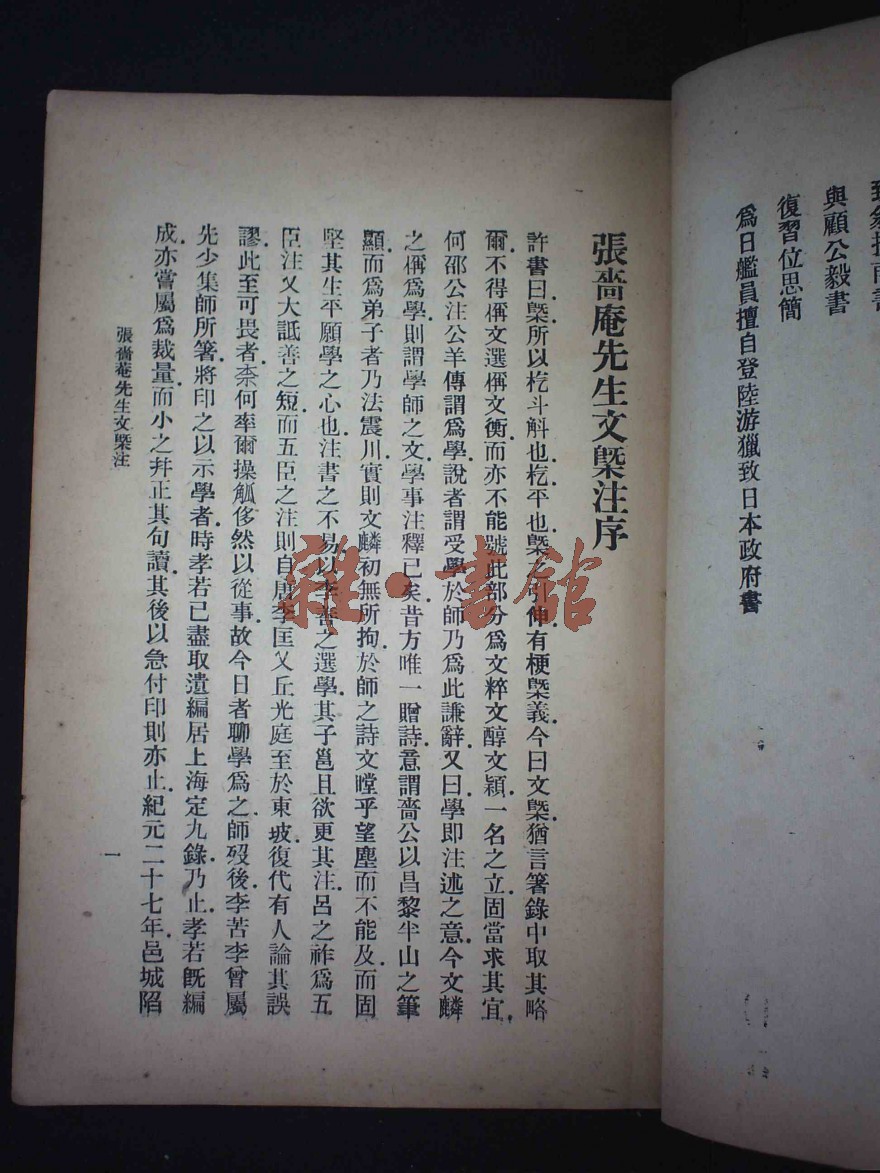 與顧公毅書
復習位思簡
爲日艦員擅自登陸游獵致日本政府書
張嗇庵先生文槩注序
許書曰槩所以杚斗斛也杚平也槩之引伸有梗槩義今曰文槩猶言箸錄中取其略
爾不得偁文選偁文衡而亦不能號此部分爲文粹文醇文穎一名之立固當求其宜
何邵公注公羊傳謂爲學說者謂受學於師乃爲此謙辭又曰學即注述之意今文麟
之偁爲學則謂學師之文學事注釋已矣昔方唯一贈詩意謂嗇公以昌黎半山之筆
顯而爲弟子者乃法震川實則文麟初無所拘於師之詩文瞠乎望塵而不能及而固
堅其生平願學之心也注書之不易以李善之選學其子邕且欲更其注呂之祚爲五
臣注又大詆善之短而五臣之注則自唐李匡乂丘光庭至於東坡復代有人論其誤
謬此至可畏者柰何率爾操觚侈然以從事故今日者聊學爲之師歿後李苦李曾屬
先少集師所箸將印之以示學者時孝若已盡取遺編居上海定九錄乃止孝若旣編
成亦嘗屬爲裁量而小之幷正其句讀其後以急付印則亦止紀元二十七年邑城陷
張嗇菴先生文槩注
一
雜·書館